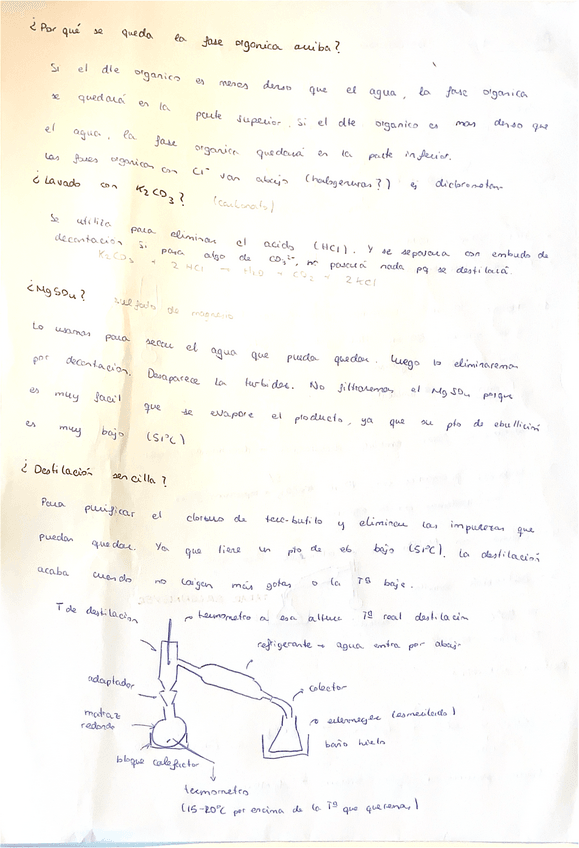 ¿Por qué se queda la fase organica arriba?
Si el dte organico es menos denso que el agua, la fase organica
se quedará en la parte superior. Si el dte organico es mas denso que
el agua, la fase organica quedará en la parte inferior.
Las fases organicas con Cl⁻ van abajo (halogenuros?) ej diclorometan
¿Lavado con K₂CO₃? (carbonato)
Se utiliza para eliminar el acido (HCl). Y se separara con embudo de
decantación. Si pasa algo de CO₃²⁻, no pasará nada pq se destilará.
K₂CO₃ + 2HCl → H₂O + CO₂ + 2KCl
¿MgSO₄? sulfato de magnesio
Lo usamos para secar el agua que pueda quedar. Luego lo eliminaremos
por decantación. Desaparece la turbidez. No filtraremos el MgSO₄ porque
es muy facil que se evapore el producto, ya que su pto de ebullición
es muy bajo (51ºC)
¿Destilación sencilla?
Para purificar el cloruro de terc-butilo y eliminar las impurezas que
puedan quedar. Ya que tiene un pto de eb bajo (51ºC). La destilación
acaba cuando no caigan más gotas o la Tª baje.
T de destilacion
termometro a esa altura Tª real destilacin
refrigerante → agua entra por abajo
adaptador
colector
matraz
redondo
erlenmeyer (esmerilado)
baño hielo
bloque calefactor
termometro
(15-20ºC por encima de la Tª que queremos)